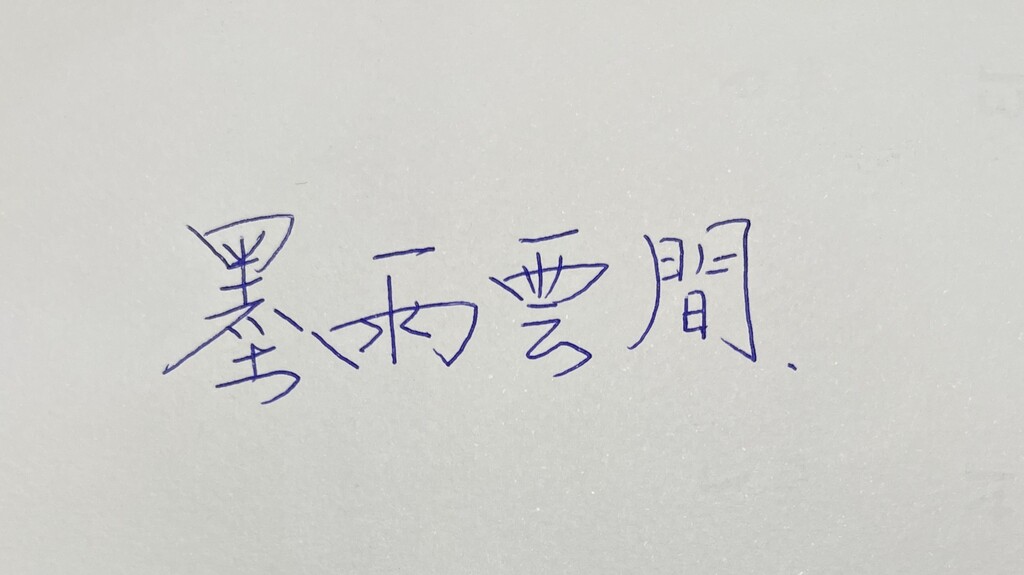 墨雨雲間.